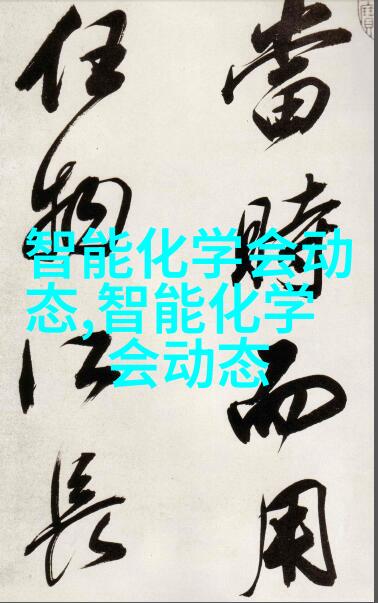 當時而用
任物以長
智能化学会动
态,智能化学
会动态